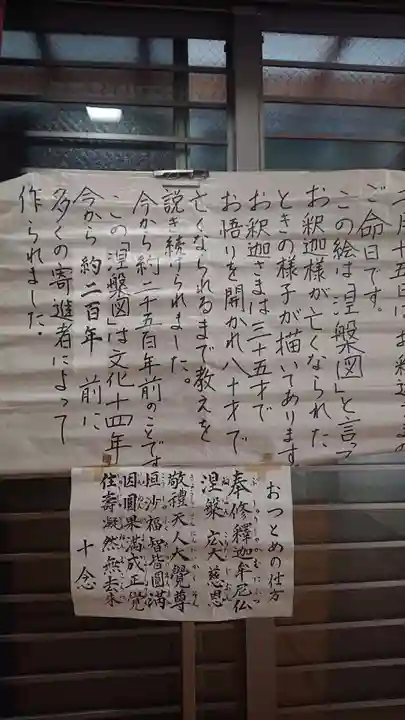 二月十五日はお釈迦さま
ご命日です。
この絵は「涅槃図」と言って
お釈迦様が亡くなられた
ときの様子が描いてあります
お釈迦さまは三十五才で
お悟りを開かれ八十才で
亡くなられるまで教えを
説き続けられました。
今から約二千五百年前のことです
この「涅槃図」は文化十四年
今から約二百年前に
多くの寄進者によって
作られました。
おつとめの仕方
奉修釋迦牟尼仏
涅槃宏大慈恩
敬禮天人大覺尊
恒沙福智皆圓満
因圓果満成正覺
住壽凝然無去来
十念